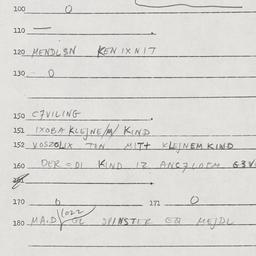 100 0
110 —
120 MENDLSN KENIXNIT
130 - 0
150 C7VILING
151 IXOBA KLEJNE/M/ KIND
152 VOSZOLIX TON MIT+ KLEJNEM KIND
160 DER =DI KIND IZ
170 0 171 0
180 MA.D SPINSTER EQ MEJDL